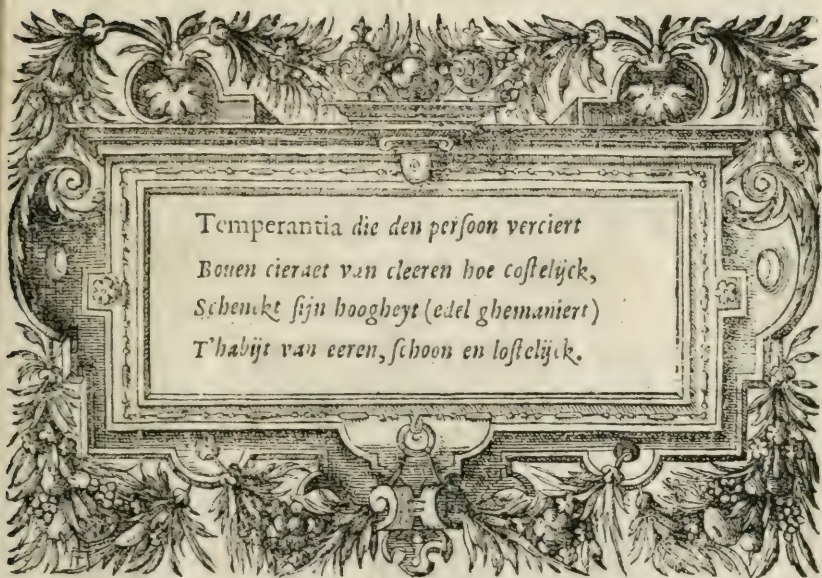 Temperantia die den perſoon verciert
Bouen cieraet van cleeren hoe coſtelijck,
Schenckt ſijn hoogheyt (edel ghemaniert)
T'habijt van eeren, ſchoon en loſtelijck.